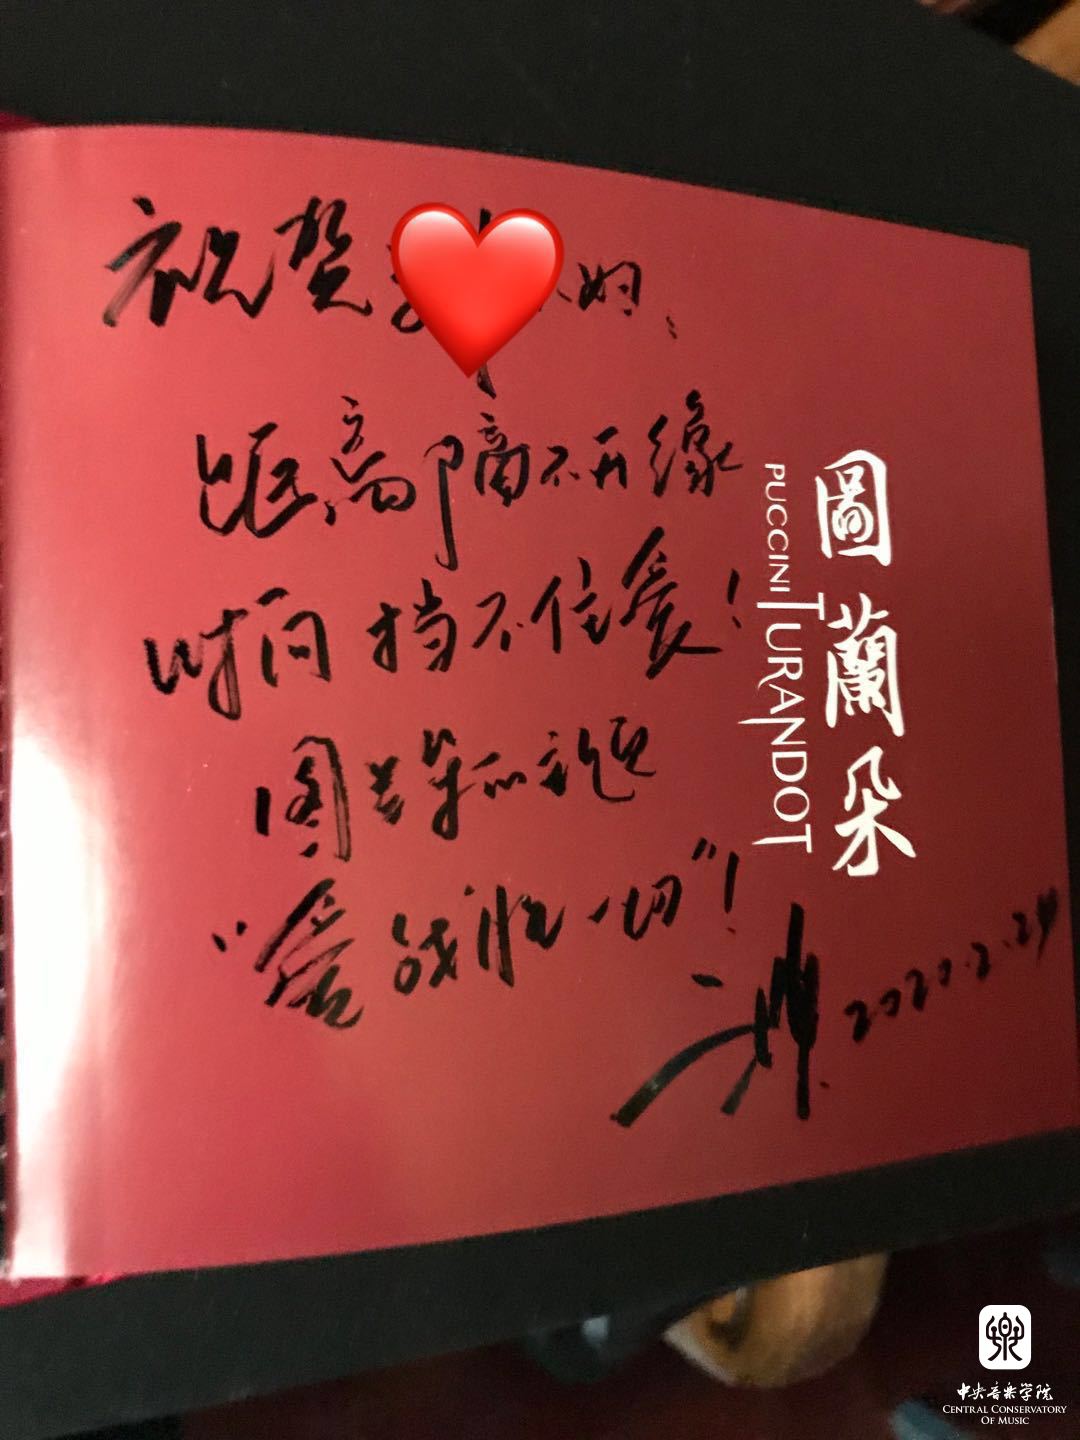 祝贺
距离隔不开缘
时间挡不住爱！
图兰朵的主题
“爱战胜一切”！
2020.2.24
圖蘭朵
PUCCINI TURANDOT
中央音乐学院
CENTRAL CONSERVATORY
OF MUSIC